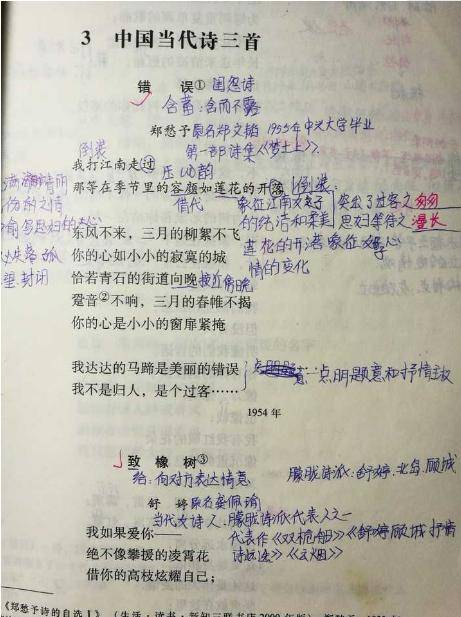 3 中国当代诗三首
错 误① 闺怨诗
含蓄：含而不露
郑愁予 原名郑文韬 1955年中兴大学毕业
第一部诗集《梦土上》.
倒装
我打江南走过
压uo韵
那等在季节里的容颜如莲花的开落
倒装：
借代
象征江南女子
的纯洁和柔美
突出了过客之匆匆
思妇等待之漫长
莲花的开落象征女子
心情的变化
东风不来，三月的柳絮不飞
你的心如小小的寂寞的城
恰若青石的街道向晚 接近傍晚
跫音②不响，三月的春帷不揭
你的心是小小的窗扉紧掩
望.封闭
我达达的马蹄是美丽的错误
我不是归人，是个过客……
点明题意和抒情主权
1954 年
致 橡 树③
给：向对方表达情意
朦胧诗派：舒婷.北岛.顾城
舒 婷 原名龚佩瑜
当代女诗人.朦胧诗派代表人之一
代表作《双桅船》《舒婷顾城抒情
诗选》《会唱歌的鸢尾花》
我如果爱你——
绝不像攀援的凌霄花
借你的高枝炫耀自己；
《郑愁予诗的自选Ⅰ》（生活·读书·新知三联书店2000年版）